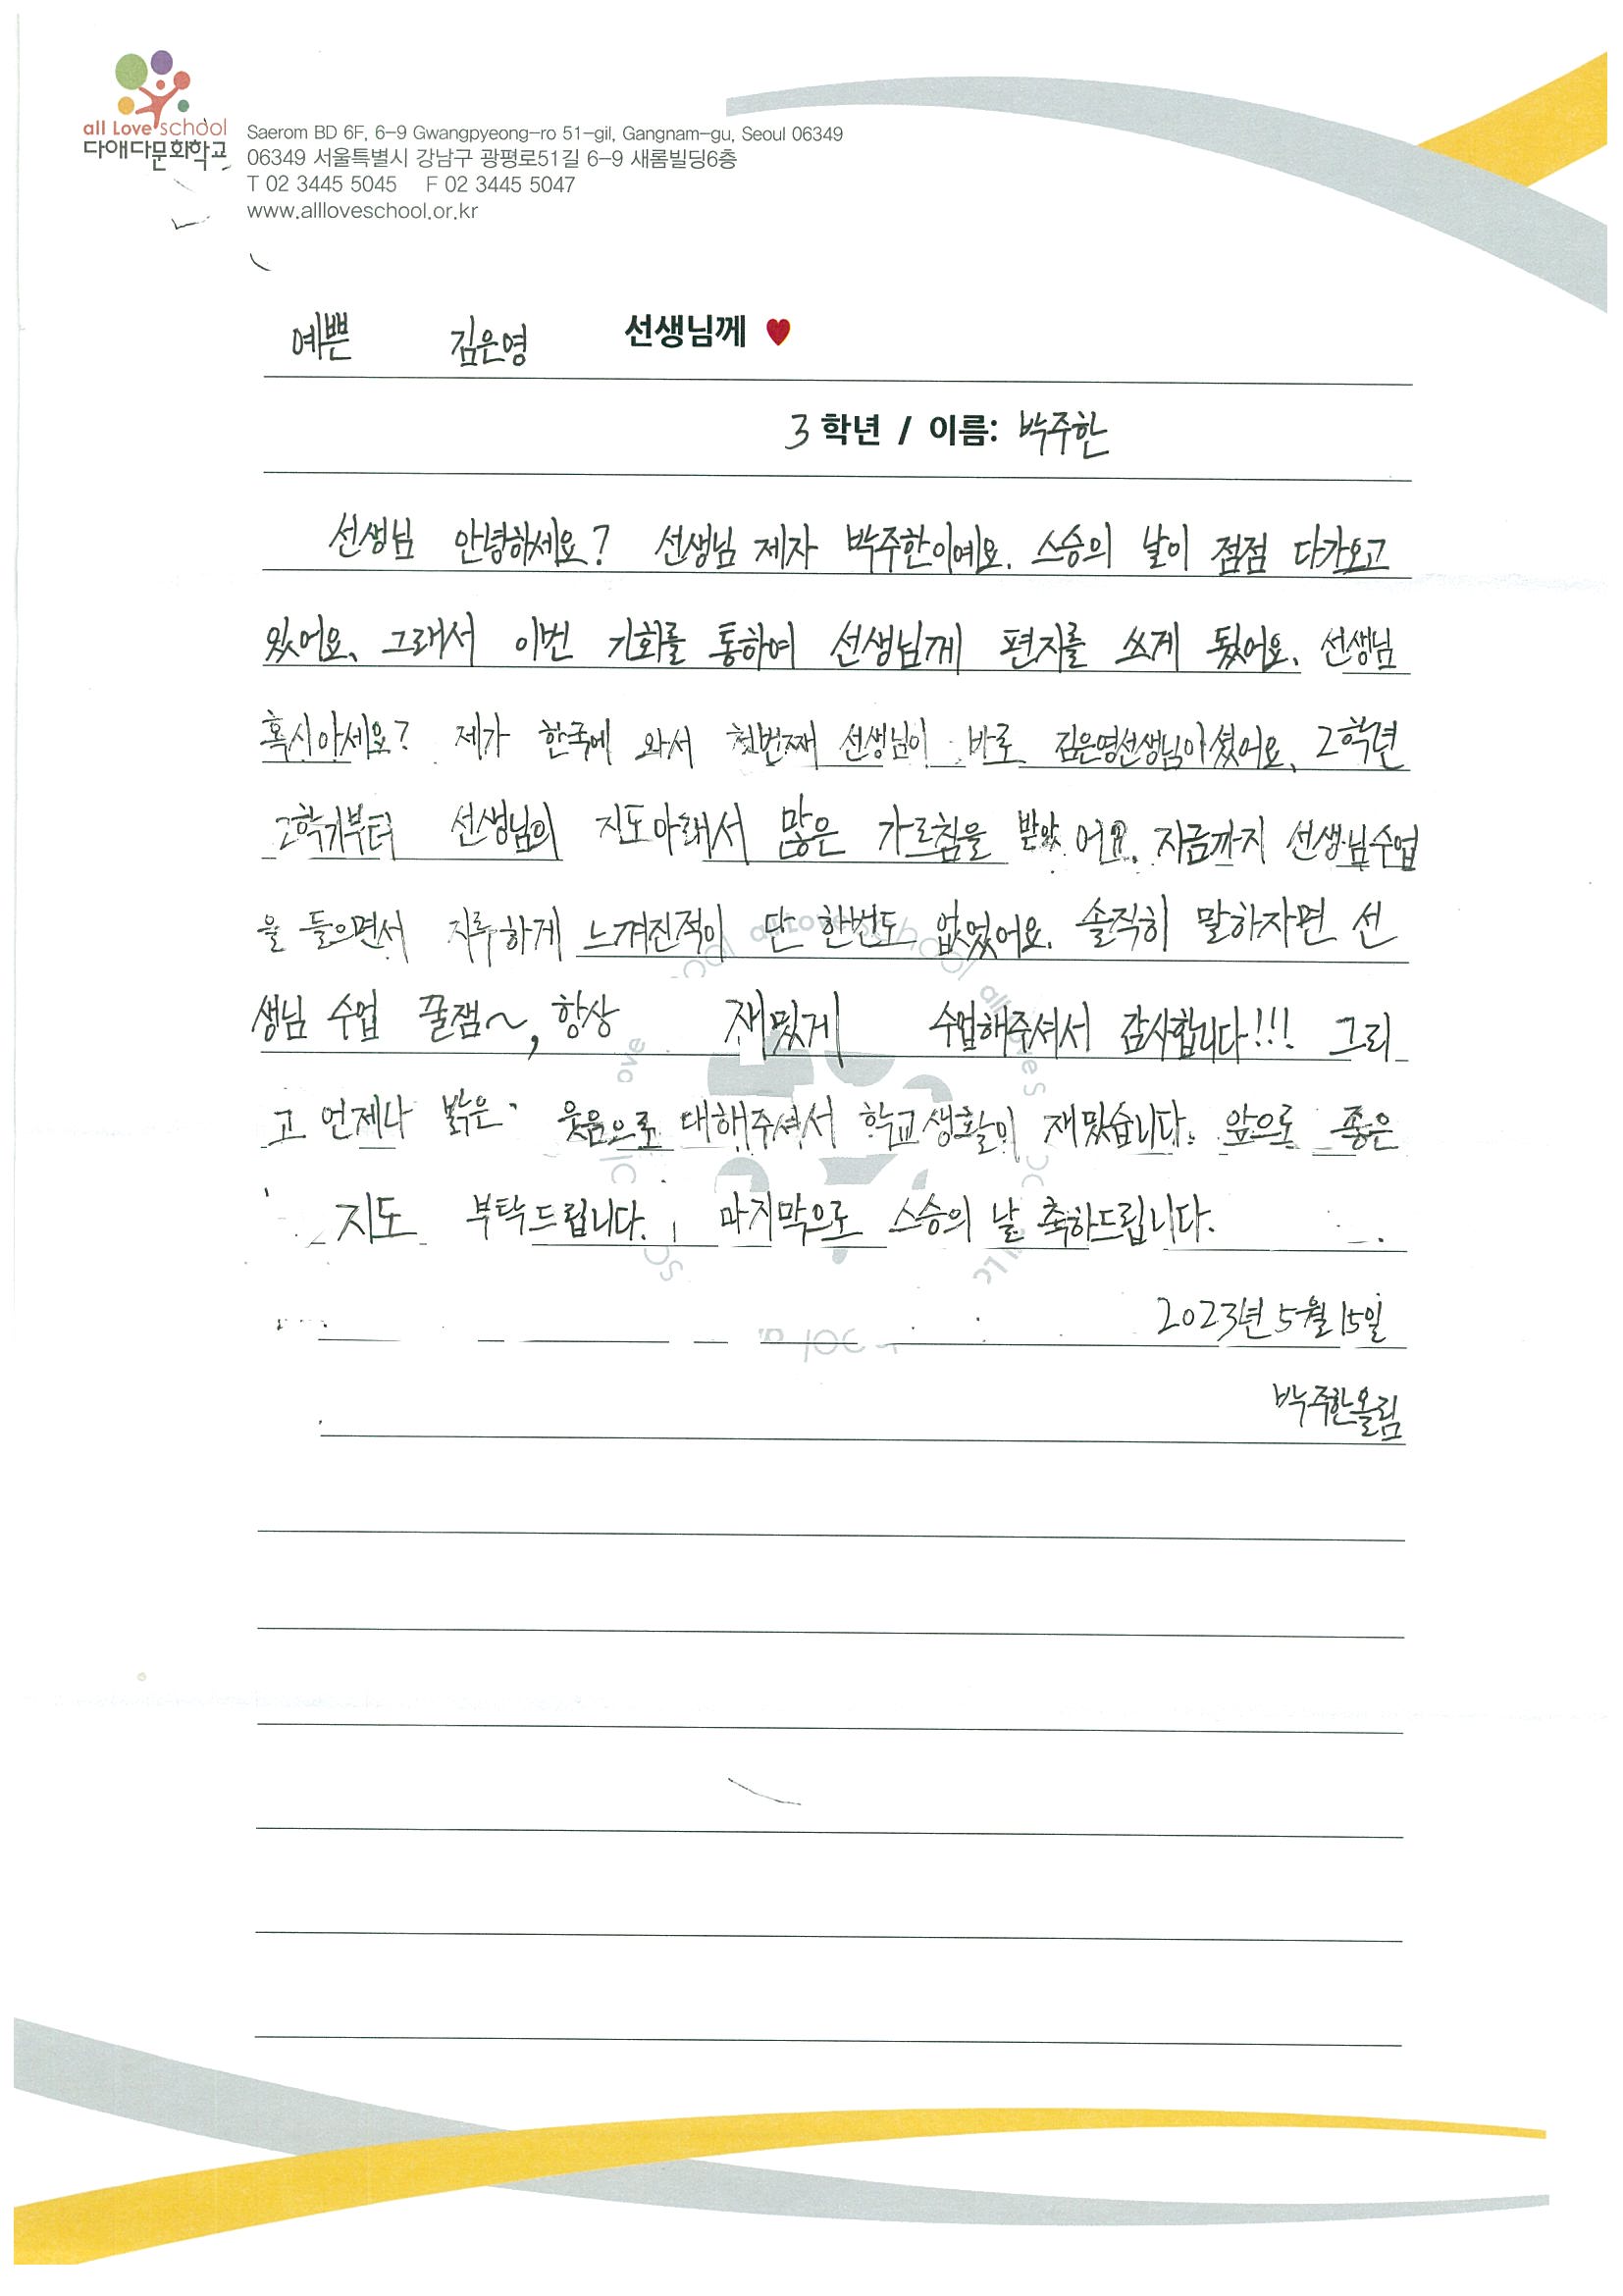 all Love school
다애다문화학교
Saerom BD 6F, 6-9 Gwangpyeong-ro 51-gil, Gangnam-gu, Seoul 06349
06349 서울특별시 강남구 광평로51길 6-9 새롬빌딩6층
T 02 3445 5045 F 02 3445 5047
www.allloveschool.or.kr
예쁜 김은영 선생님께 ♥
3 학년 / 이름: 박주한
선생님 안녕하세요? 선생님 제자 박주한이예요. 스승의 날이 점점 다가오고
있어요. 그래서 이번 기회를 통하여 선생님께 편지를 쓰게 됐어요. 선생님
혹시아세요? 제가 한국에 와서 첫번째 선생님이 바로 김은영선생님이셨어요. 2학년
2학기부터 선생님의 지도아래서 많은 가르침을 받았어요. 지금까지 선생님수업
을 들으면서 지루하게 느껴진적이 단 한번도 없었어요. 솔직히 말하자면 선
생님 수업 꿀잼~, 항상 재밌게 수업해주셔서 감사합니다!!! 그리
고 언제나 밝은 웃음으로 대해주셔서 학교생활이 재밌습니다. 앞으로 좋은
지도 부탁드립니다. 마지막으로 스승의 날 축하드립니다.
2023년 5월 15일
박주한올림